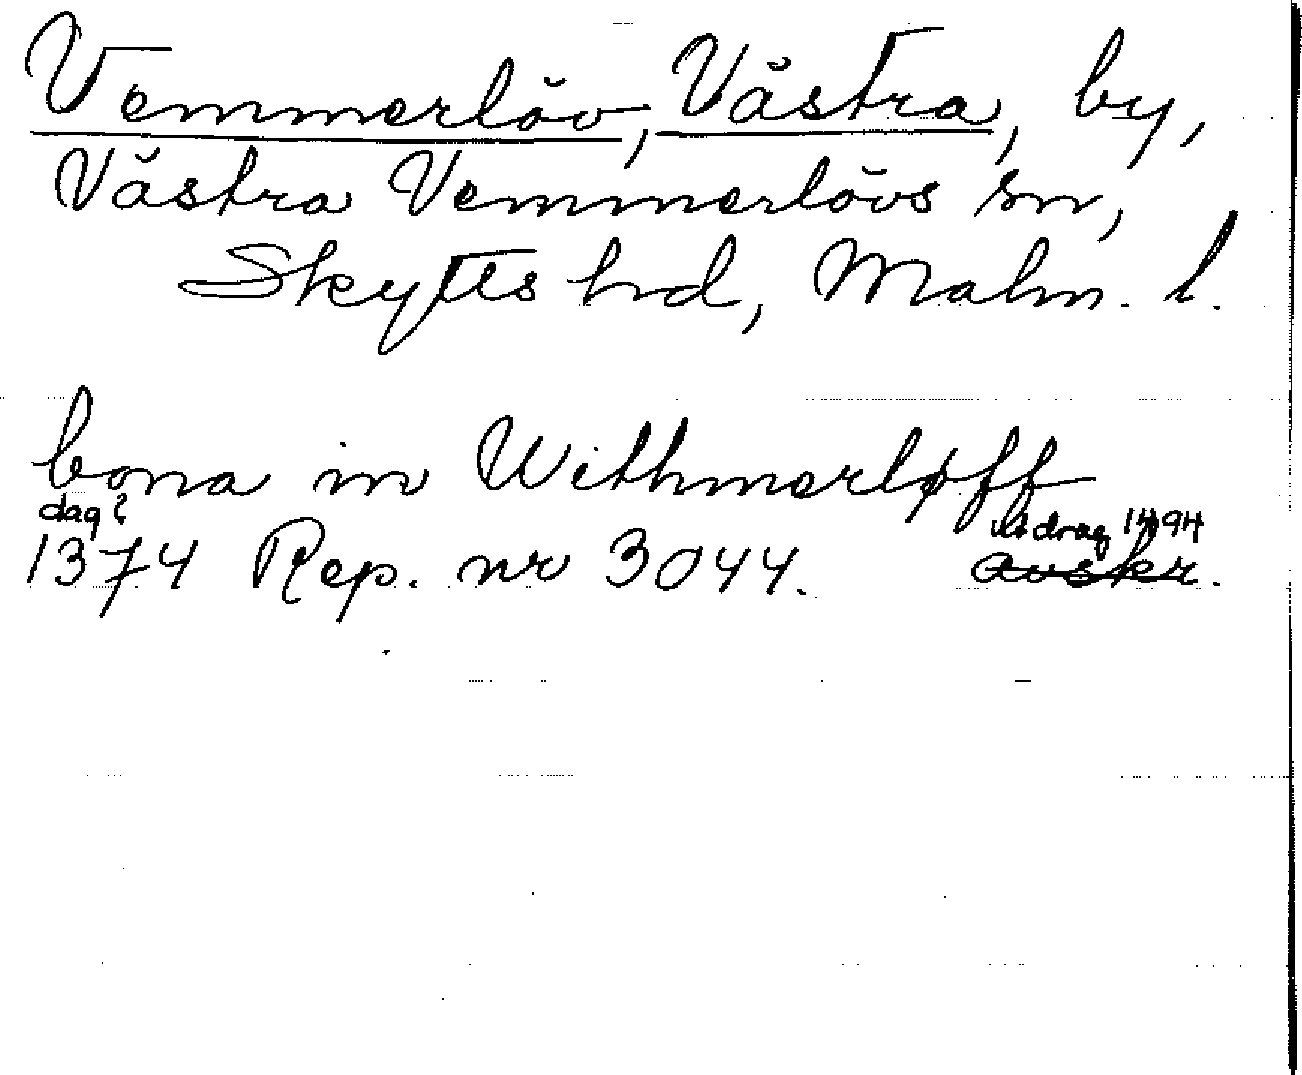 Vemmerlöv, Västra, by,
Västra Vemmerlövs sn,
Skytts hd, Malm. l.
bona in Withmerløff
dag? utdrag 1494
1374 Rep. nr 3044. avskr.